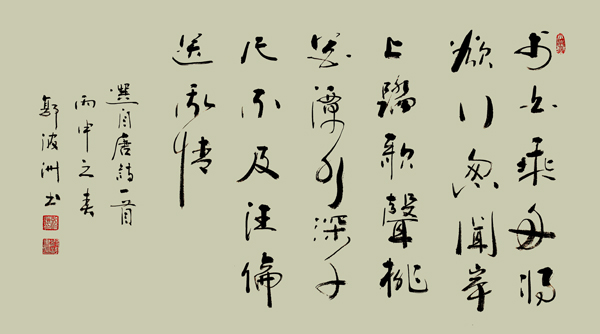 李白乘舟將
欲行忽聞岸
上踏歌聲桃
花潭水深千
尺不及汪倫
送我情
選自唐詩一首
丙申之春
郭波洲書